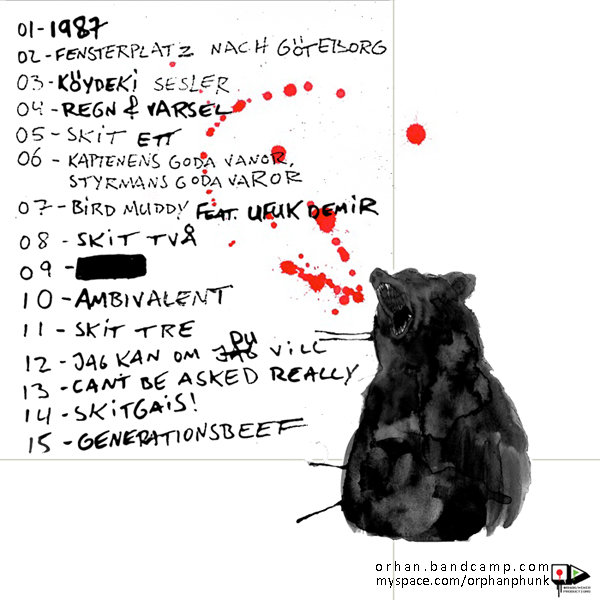 01-1987
02-FENSTERPLATZ NACH GÖTEBORG
03-KÖYDEKi SESLER
04-REGN & VARSEL
05-SKIT ETT
06-KAPTENENS GODA VANOR,
STYRMANS GODA VAROR
07-BIRD MUDDY FEAT. UFUK DEMIR
08-SKIT TVÅ
09-
10-AMBIVALENT
11-SKIT TRE
12-JAG KAN OM JAG DU VILL
13-CAN'T BE ASKED REALLY
14-SKITGAIS!
15-GENERATIONSBEEF
orhan.bandcamp.com
myspace.com/orphanphunk